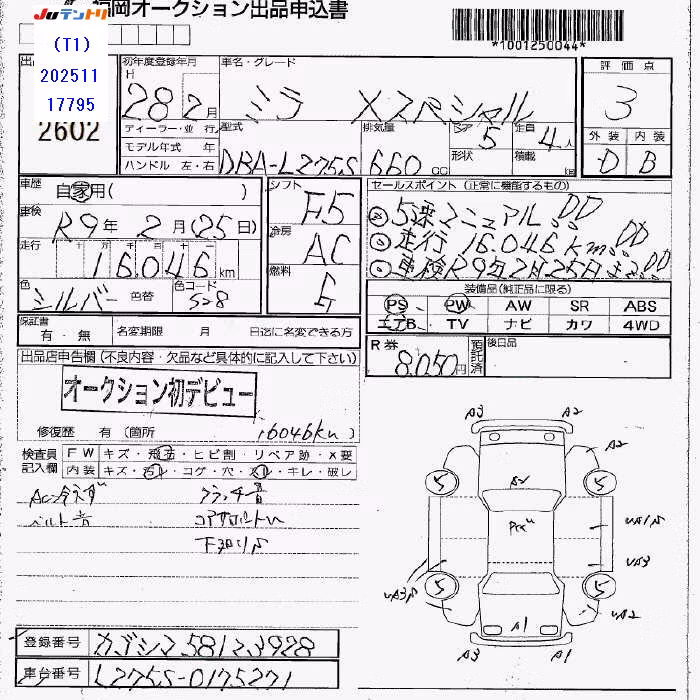 JUテントリ
福岡オークション出品申込書
(T1)
202511
17795
2602
*1001250044*
初年度登録年月
H
28 2月
車名・グレード
ミラ Xスペシャル
評価点
3
外装 内装
D B
ディーラー・並行
モデル年式 年
ハンドル 左・右
型式
DBA-L275S
排気量
660cc
ドア 5
形状
定員 4人
積載 kg
車歴
自家用( )
車検
R9年 2月(25日)
走行
十 万 千 百 十
16046km
色
シルバー
色替
色コード
S28
シフト
F5
冷房
AC
燃料
G
セールスポイント (正常に機能するもの)
5速マニュアル!!
走行 16.046km!!
車検R9年2月25日まで!!
装備品(純正品に限る)
PS PW AW SR ABS
エアB. TV ナビ カワ 4WD
保証書
有・無
名変期限 月 日迄に名変できる方
R券
8.050円
預託済
後日品
出品店申告欄(不良内容・欠品など具体的に記入して下さい)
オークション初デビュー
修復歴 有 (箇所 16046km)
検査員記入欄
FW キズ・飛石・ヒビ割・リペア跡・×要
内装 キズ・汚れ・コゲ・穴・スレ・キレ・破レ
AC冷えず クラッチ音
ベルト音 コアサポートU
下廻りS
A3 A2
A2
5 5
A1
5 5
UA3
UA2
A3 A1
登録番号 カゴシマ581ス3928
車台番号 L275S-0175271